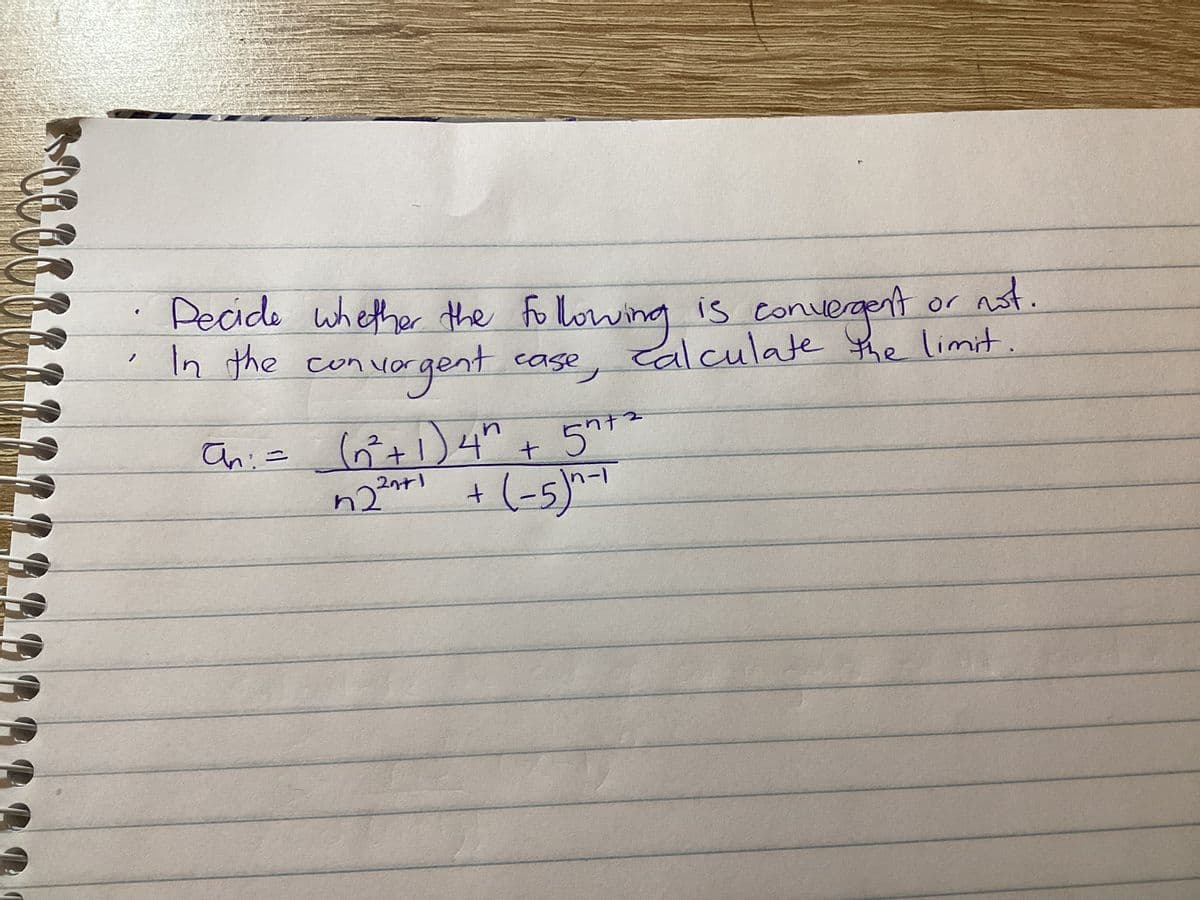 · Decide whether the following is convergent or not.
, In the convorgent case, calculate the limit.
an := (n²+1)4ⁿ + 5ⁿ⁺²
n2²ⁿ⁺¹ + (-5)ⁿ⁻¹